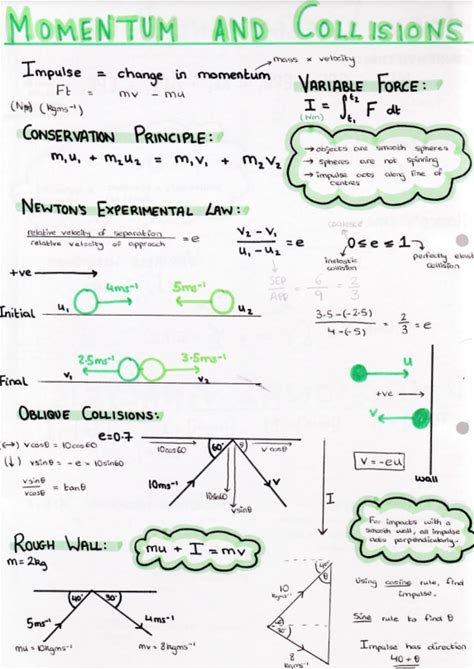 MOMENTUM AND COLLISIONS
mass × velocity
Impulse = change in momentum
Ft = mv - mu
(Ns) (Kgms⁻¹)
VARIABLE FORCE:
I = ∫ t₂ t₁ F dt
(Ns)
CONSERVATION PRINCIPLE:
m₁u₁ + m₂u₂ = m₁v₁ + m₂v₂
→ objects are smooth spheres
→ spheres are not spinning
→ impulse acts along line of
centres
NEWTON'S EXPERIMENTAL LAW:
relative velocity of separation / relative velocity of approach = e
v₂ - v₁ / u₁ - u₂ = e
coalesce
0 ≤ e ≤ 1
inelastic
collision
perfectly elastic
collision
SEP / APP = 6 / 9 = 2 / 3
+ve
4ms⁻¹
5ms⁻¹
u₁
u₂
Initial
3.5-(-2.5) / 4-(-5) = 2 / 3 = e
2.5ms⁻¹
3.5ms⁻¹
v₁
v₂
Final
u
+ve
v
v = -eu
wall
OBLIQUE COLLISIONS:
e=0.7
(↔) vcosθ = 10cos60
(↓) vsinθ = -e × 10sin60
vsinθ / vcosθ = tanθ
10cos60
60°
θ
vcosθ
10ms⁻¹
10sin60
v
vsinθ
I
For impacts with a
smooth wall, all impulse
acts perpendicularly.
ROUGH WALL:
m = 2kg
mu + I = mv
40°
30°
5ms⁻¹
4ms⁻¹
mu = 10kgms⁻¹
mv = 8kgms⁻¹
40°
θ
10
kgms⁻¹
I
30°
8
kgms⁻¹
Using cosine rule, find
impulse
Sine rule to find θ
Impulse has direction
40 + θ